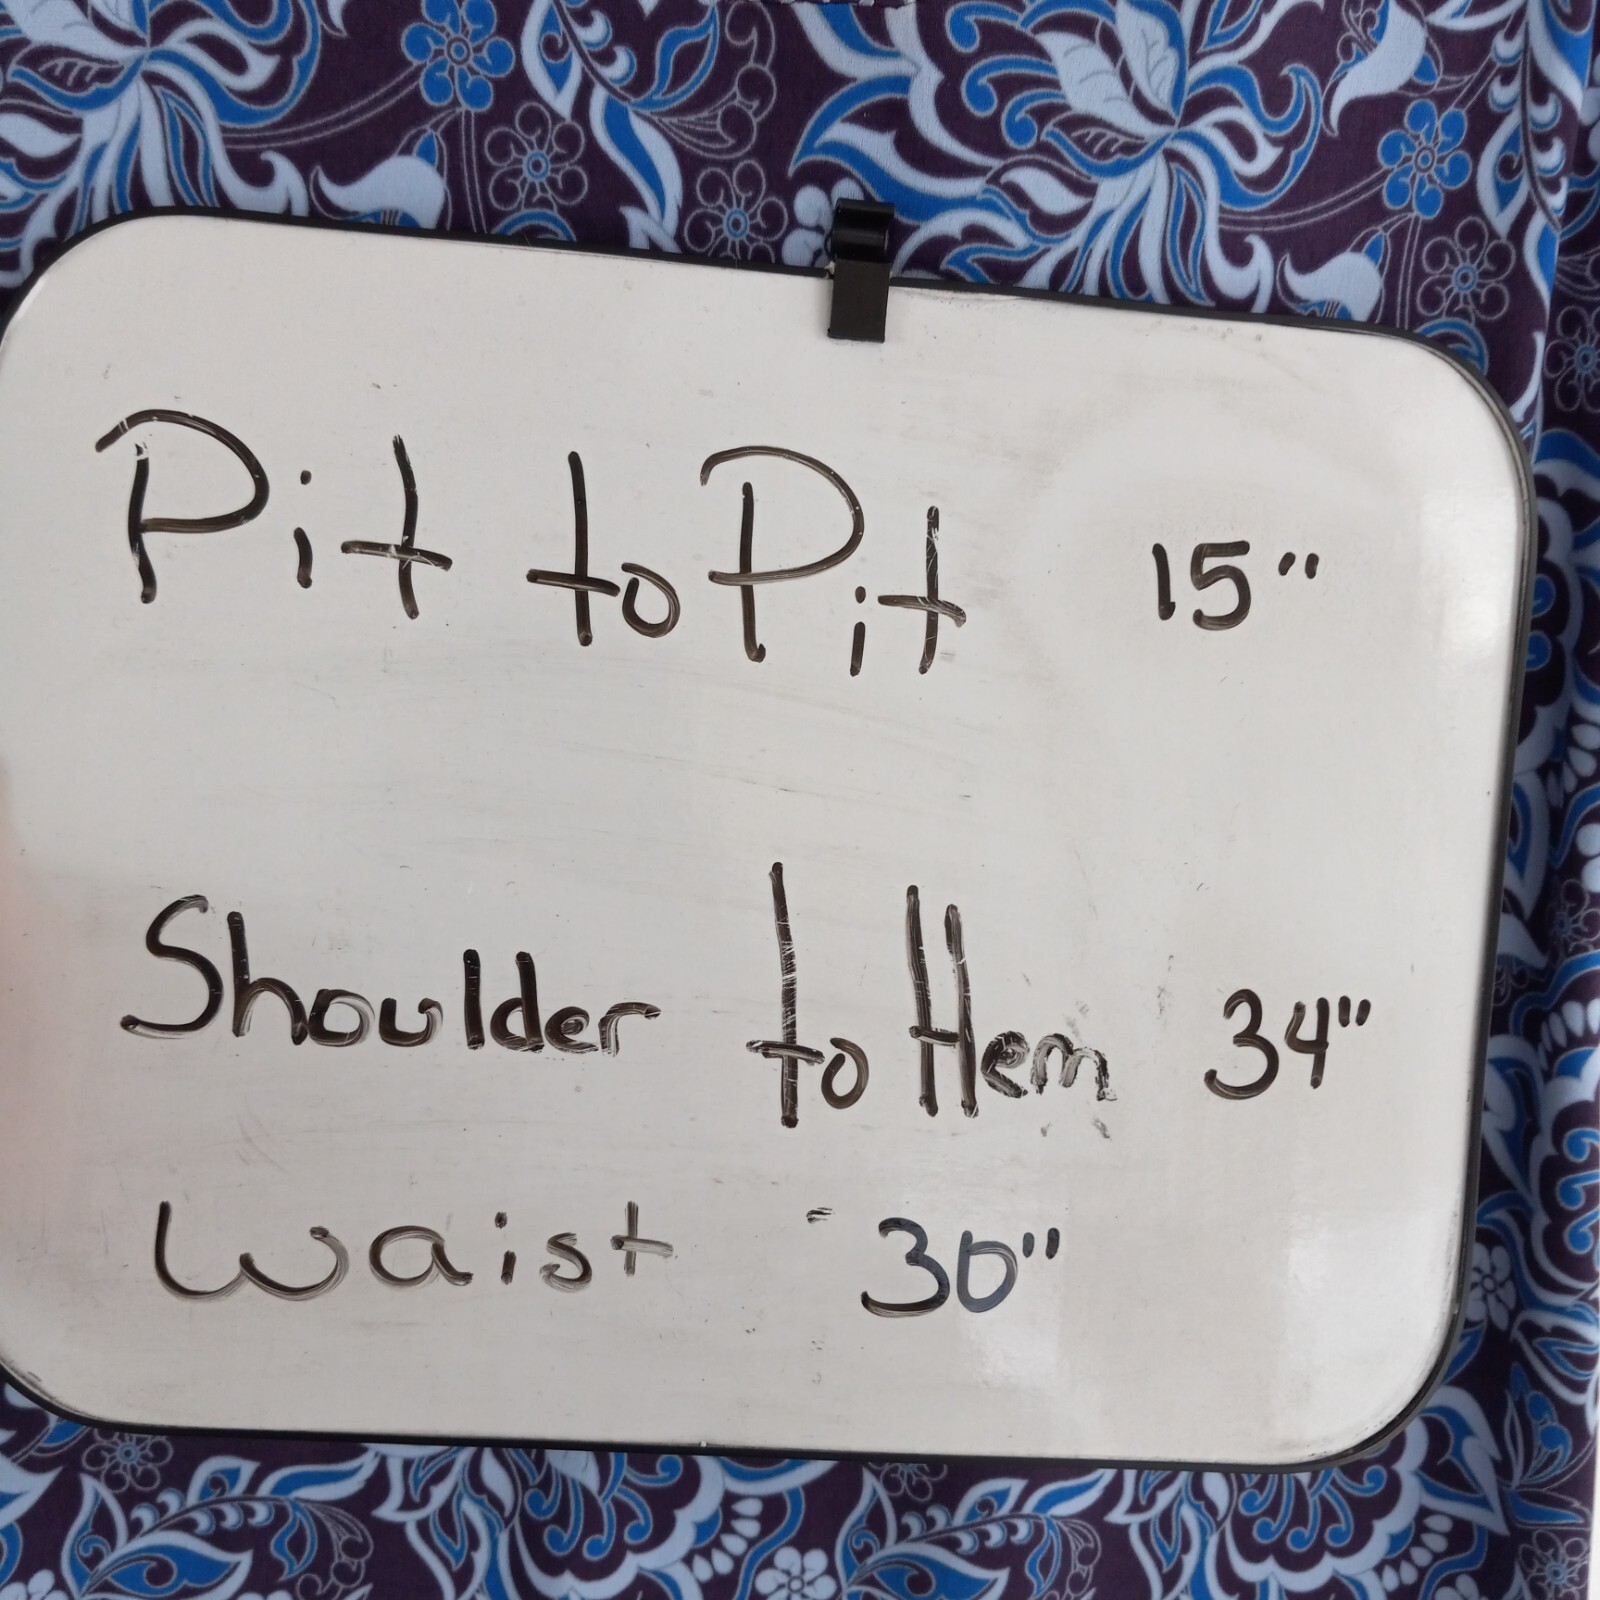 Pit to Pit 15"
Shoulder to Hem 34"
Waist 30"